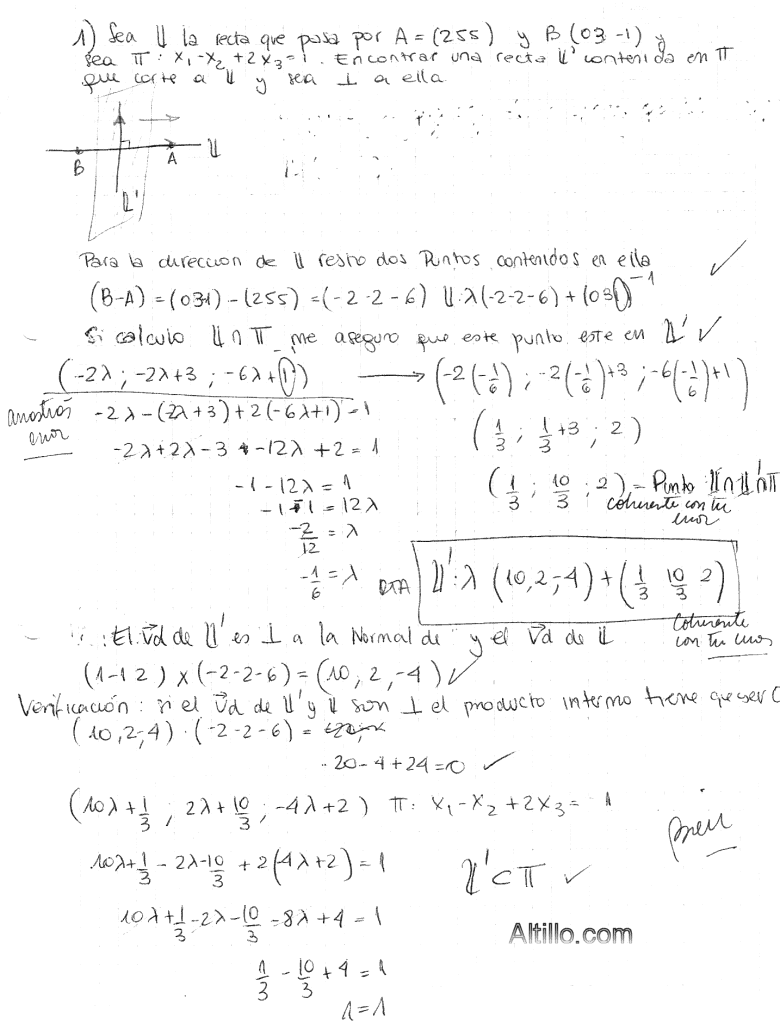 1) Sea 𝕃 la recta que pasa por A = (255) y B (03 -1) y
sea π : x₁-x₂+2x₃=1. Encontrar una recta 𝕃' contenida en π
que corte a 𝕃 y sea ⊥ a ella
B A 𝕃
𝕃'
Para la direccion de 𝕃 resto dos Puntos contenidos en ella ✓
(B-A) = (031) - (255) = (-2 -2 -6) 𝕃: λ(-2-2-6) + (031) -1
Si calculo 𝕃 ∩ π me aseguro que este punto este en 𝕃' ✓
(-2λ ; -2λ+3 ; -6λ+1) → (-2(-1/6) ; -2(-1/6)+3 ; -6(-1/6)+1)
arrastrás error
-2λ-(-2λ+3)+2(-6λ+1)=1
(1/3 ; 1/3+3 ; 2)
-2λ+2λ-3 -12λ+2=1
-1-12λ=1
(1/3 ; 10/3 ; 2) = Punto 𝕃∩𝕃'∩π
coherente con tu error
-1-1=12λ
-2/12 = λ
-1/6 = λ
RTA 𝕃': λ (10,2,-4) + (1/3 10/3 2)
Coherente con tu error
∴ El vd de 𝕃' es ⊥ a la Normal de y el vd de 𝕃
(1-1 2) x (-2-2-6) = (10, 2, -4) ✓
Verificación : si el vd de 𝕃' y 𝕃 son ⊥ el producto interno tiene que ser
(10,2,-4) · (-2-2-6) =
-20-4+24=0 ✓
(10λ+1/3 ; 2λ+10/3 ; -4λ+2) π: x₁-x₂+2x₃= 1
10λ+1/3 - 2λ-10/3 + 2(-4λ+2)=1
𝕃'⊂π ✓
Bien
10λ+1/3-2λ-10/3-8λ+4=1
Altillo.com
1/3 - 10/3 + 4 = 1
1=1